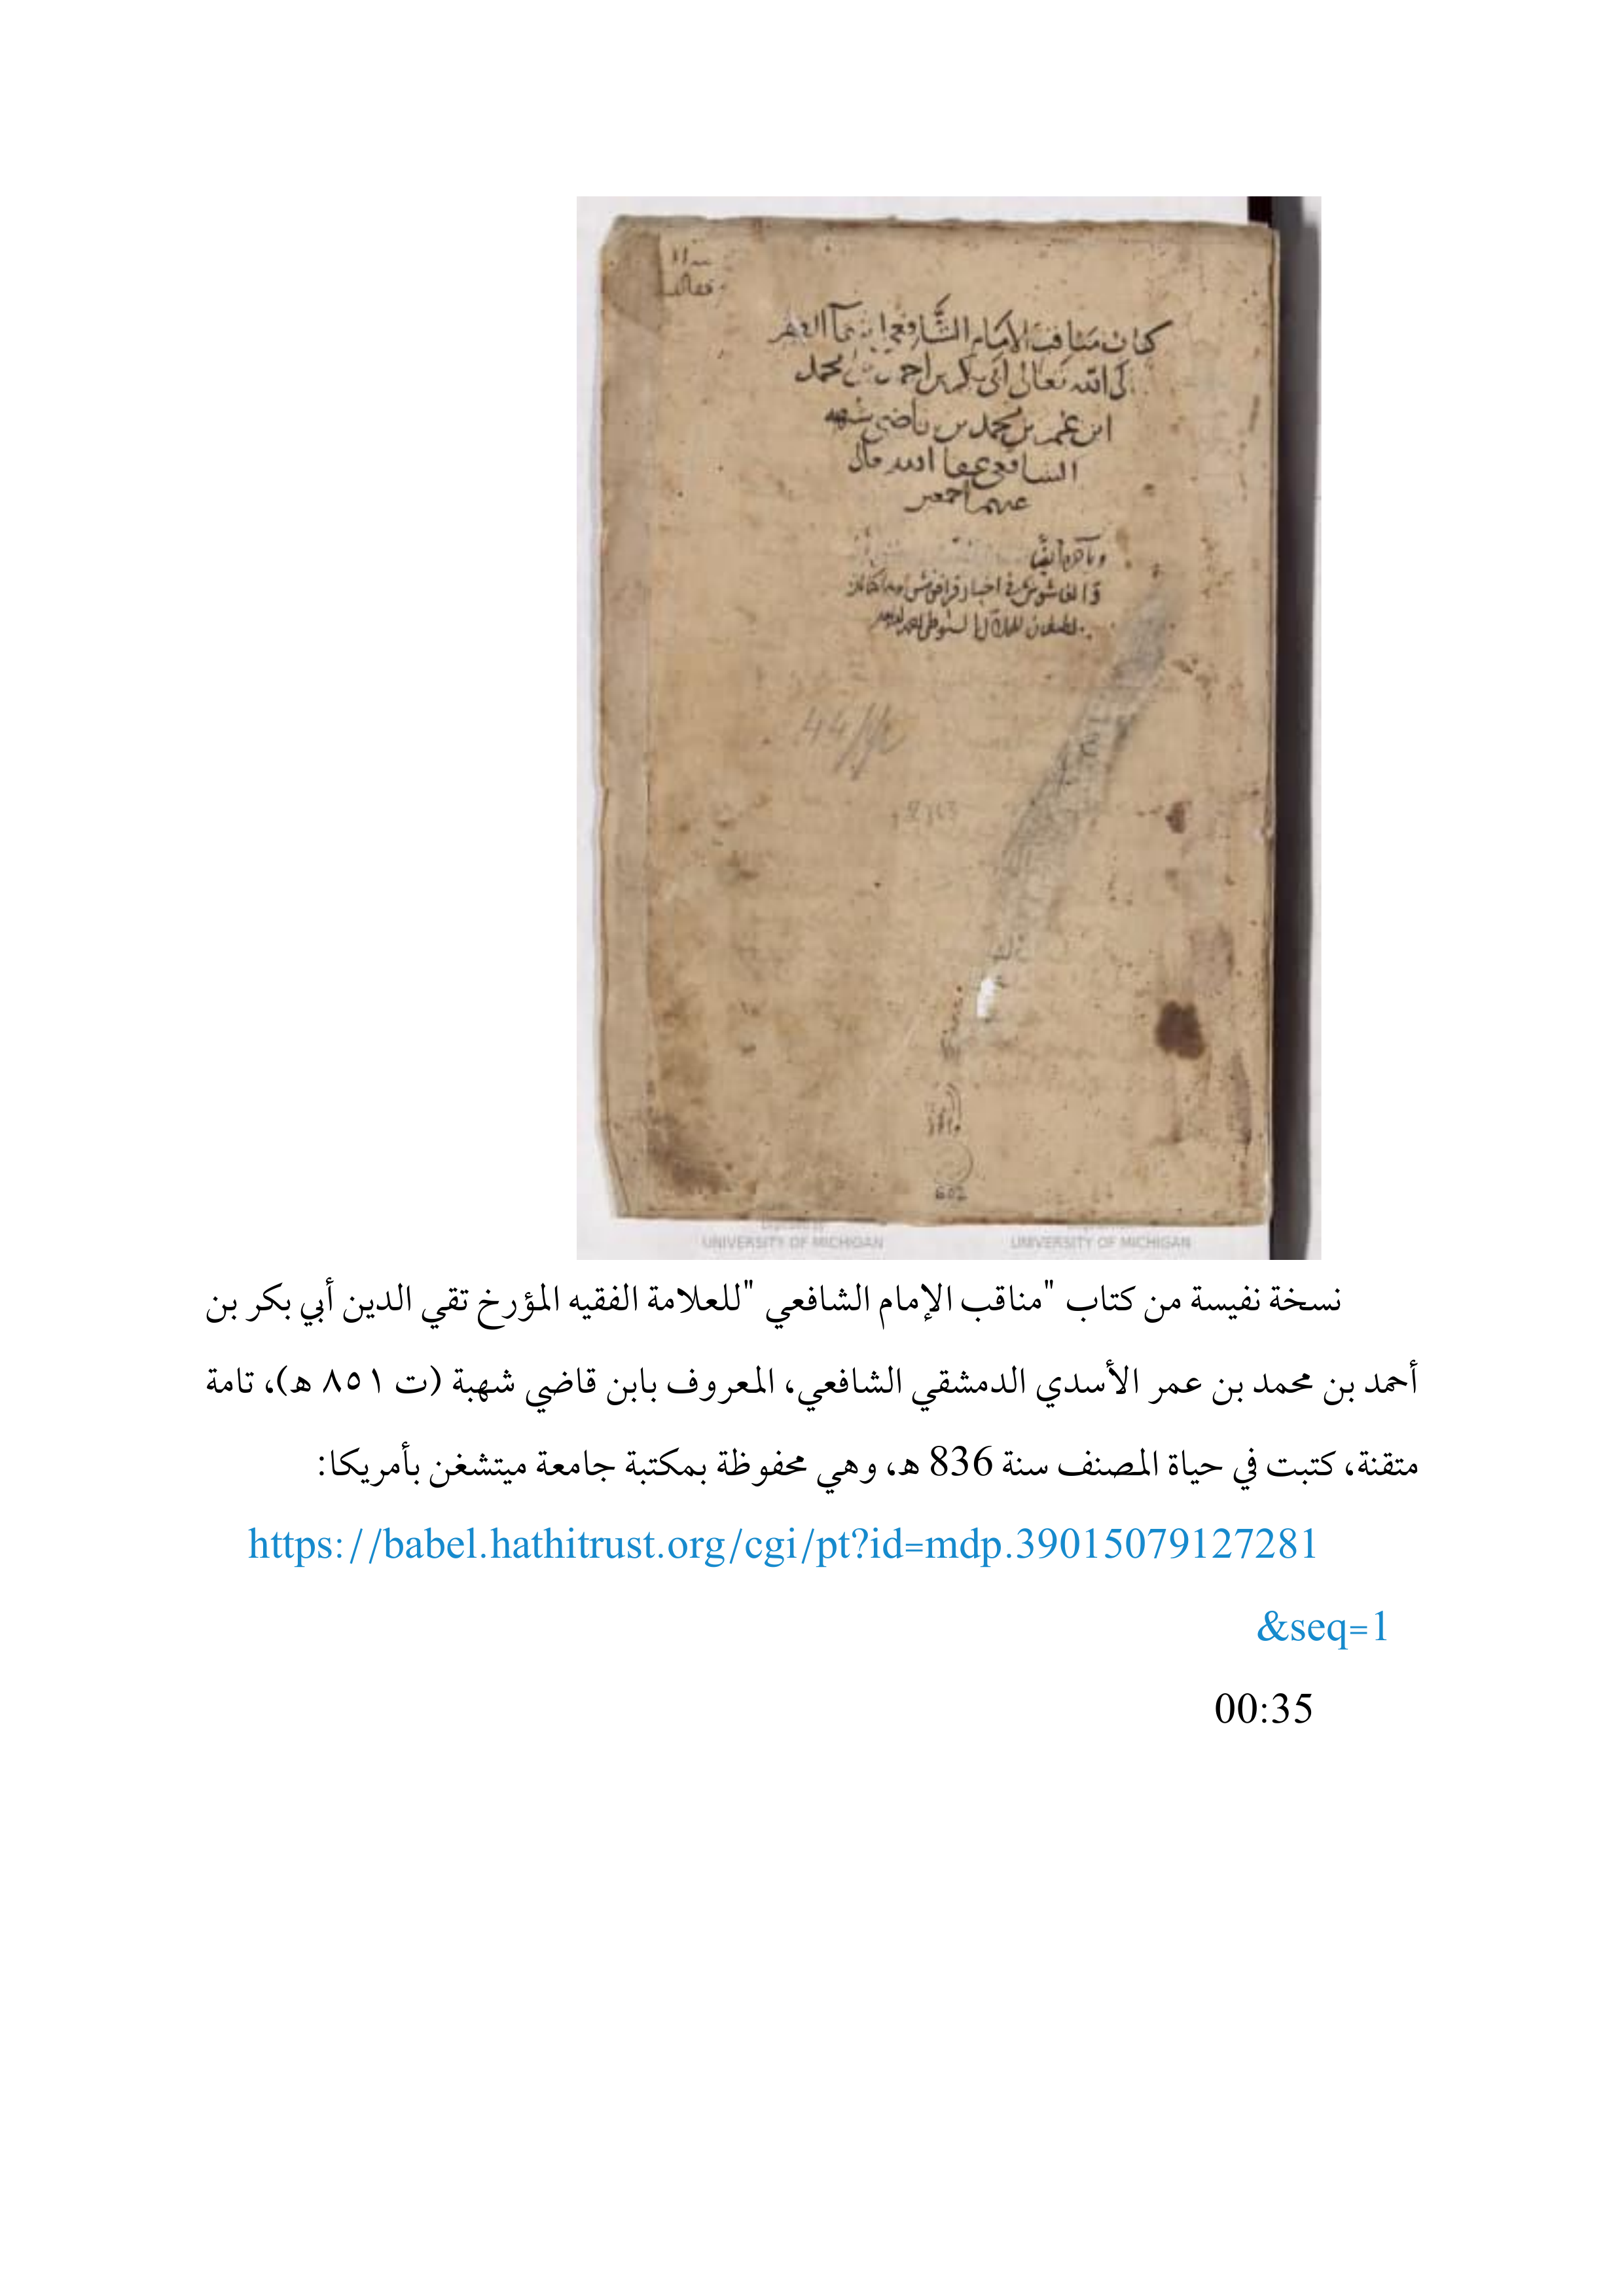 كتاب مناقب الإمام الشافعي
الله تعالى أبي بكر بن أحمد بن محمد
ابن عمر بن محمد بن قاضي شهبه
الشافعي عفا الله تعالى
عنهما اجمعين
أيضا
في اخبار قراقوش
44
UNIVERSITY OF MICHIGAN UNIVERSITY OF MICHIGAN
نسخة نفيسة من كتاب "مناقب الإمام الشافعي "للعلامة الفقيه المؤرخ تقي الدين أبي بكر بن
أحمد بن محمد بن عمر الأسدي الدمشقي الشافعي، المعروف بابن قاضي شهبة (ت ٨٥١ هـ)، تامة
متقنة، كتبت في حياة المصنف سنة 836 هـ، وهي محفوظة بمكتبة جامعة ميتشغن بأمريكا:
https://babel.hathitrust.org/cgi/pt?id=mdp.39015079127281
&seq=1
00:35